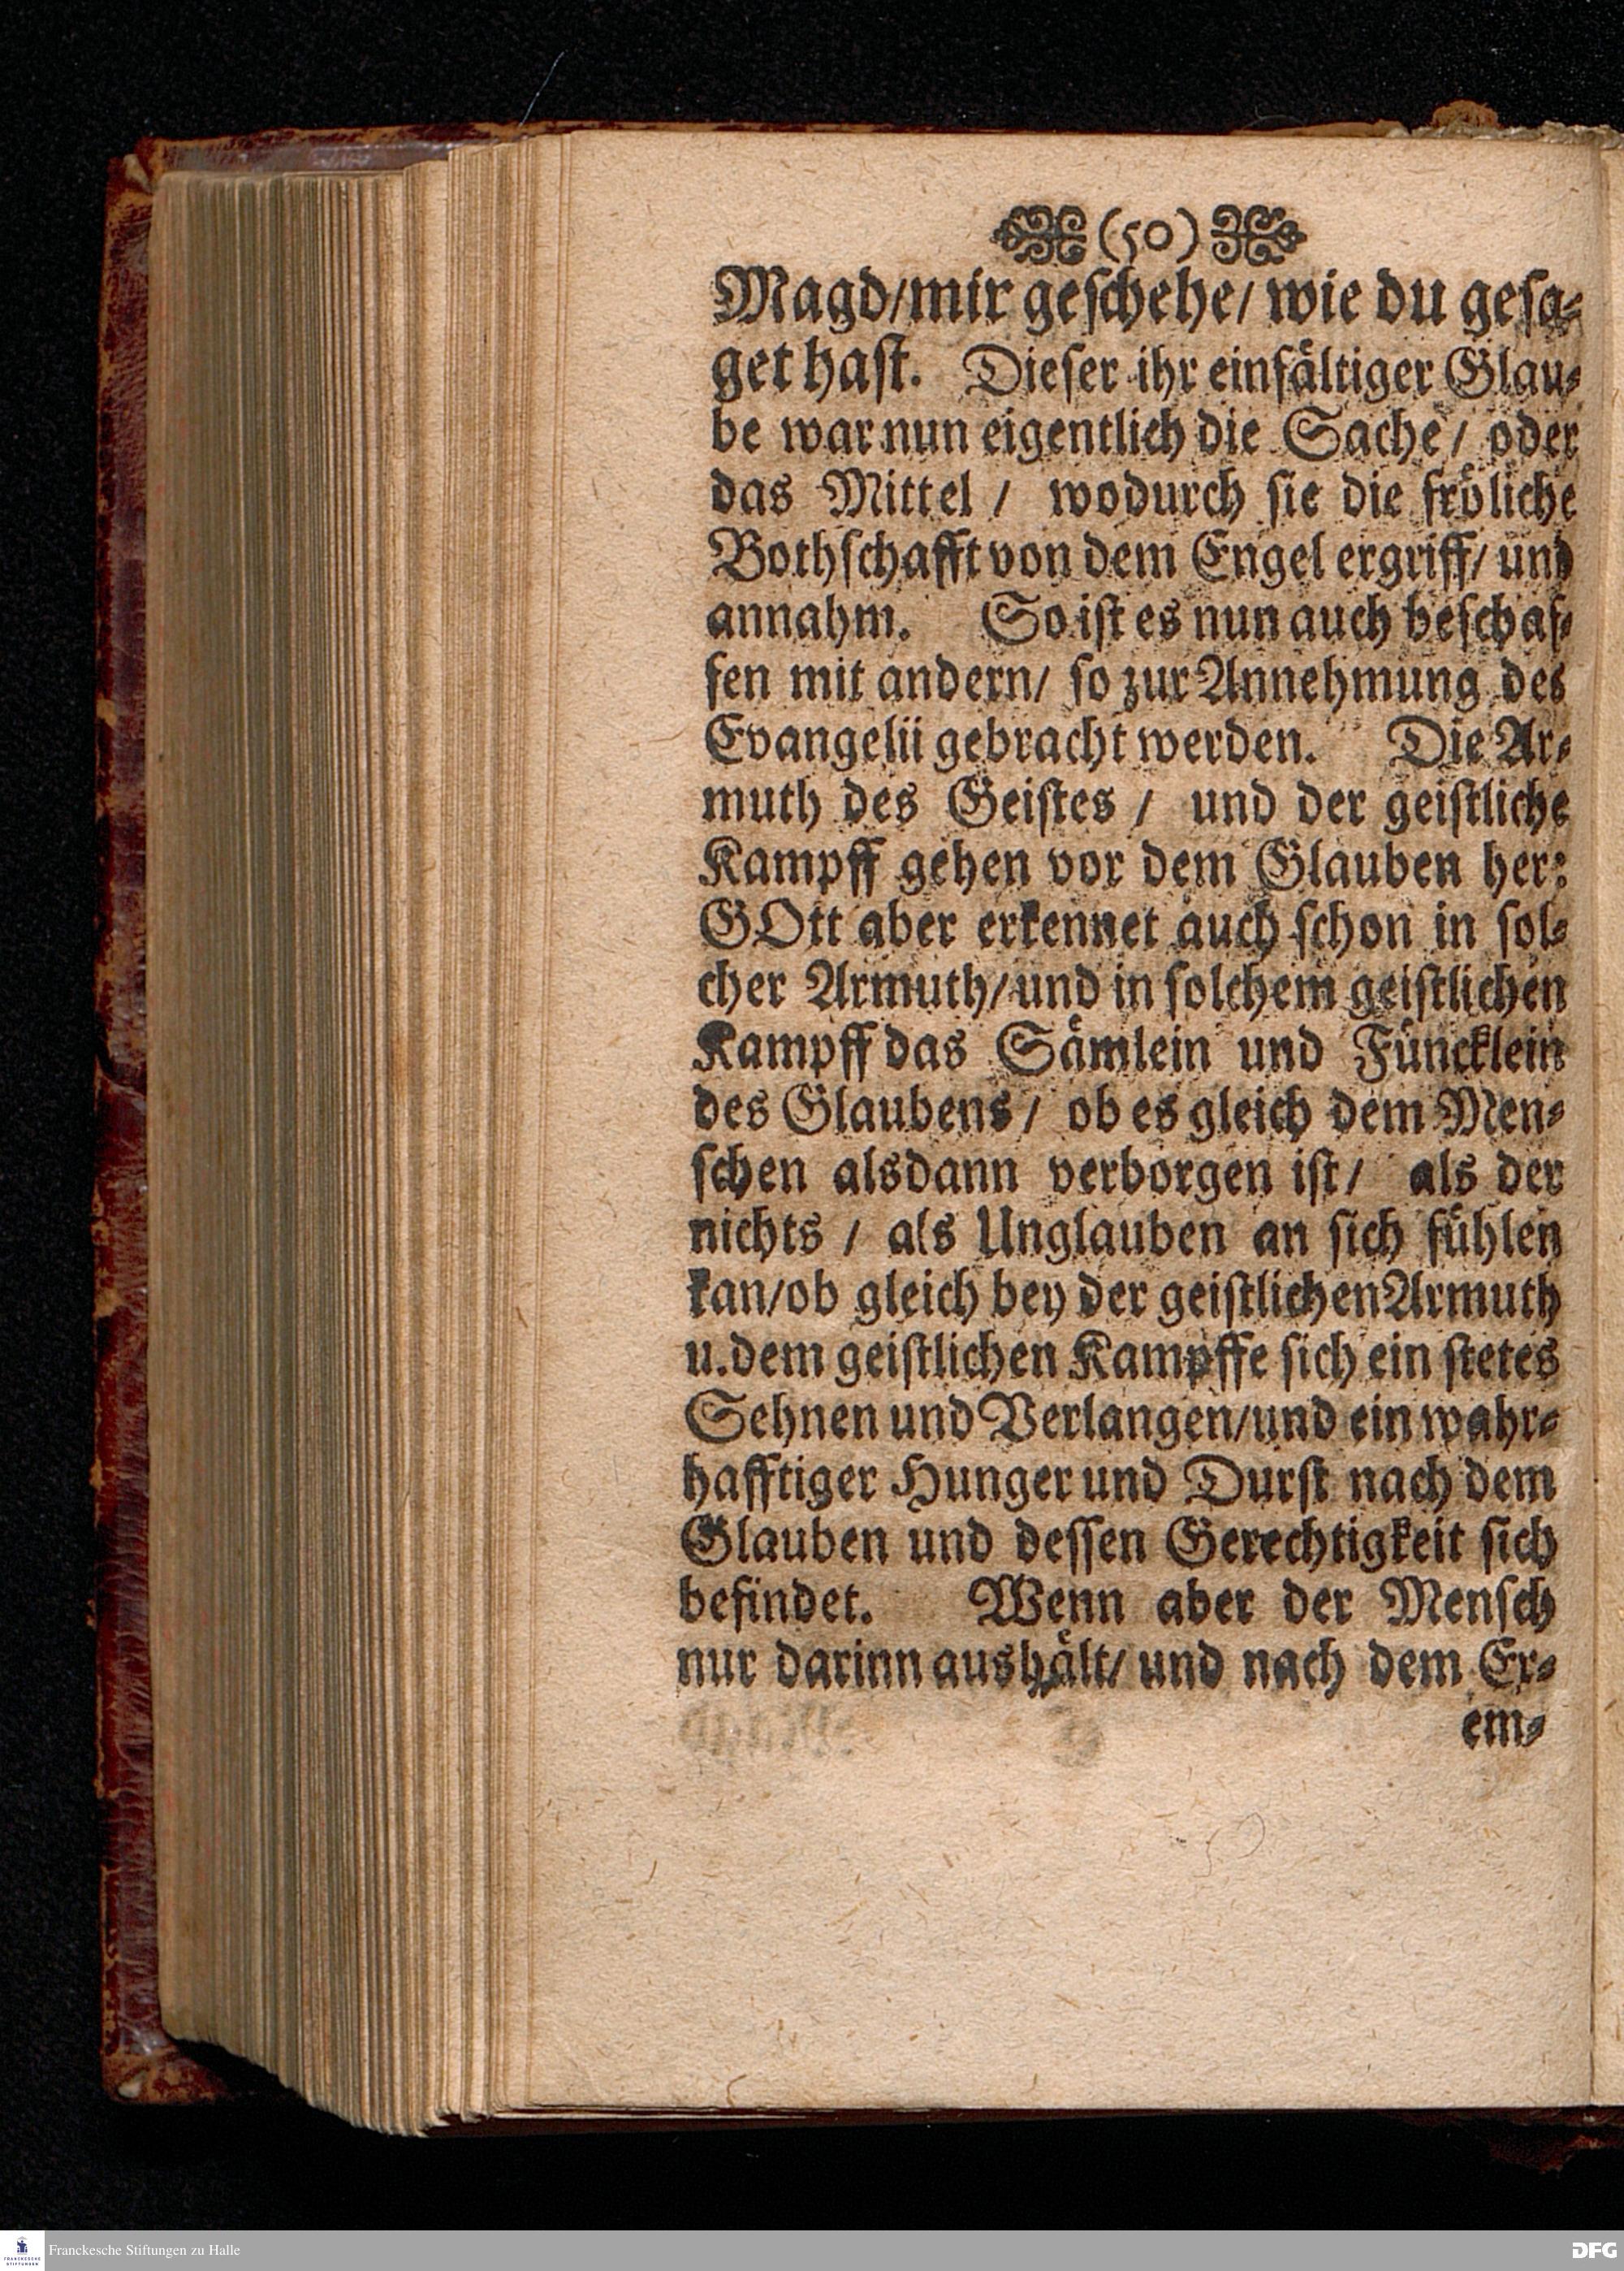 (50)
Magd/mir geſchehe/ wie du geſa⸗
get haſt. Dieſer ihr einfaͤltiger Glau⸗
be war nun eigentlich die Sache/ oder
das Mittel / wodurch ſie die froͤliche
Bothſchafft von dem Engel ergriff/ und
annahm. So iſt es nun auch beſchaf⸗
fen mit andern/ ſo zur Annehmung des
Evangelii gebracht werden. Die Ar⸗
muth des Geiſtes / und der geiſtliche
Kampff gehen vor dem Glauben her:
GOtt aber erkennet auch ſchon in ſol⸗
cher Armuth/und in ſolchem geiſtlichen
Kampff das Saͤmlein und Fuͤncklein
des Glaubens/ ob es gleich dem Men⸗
ſchen alsdann verborgen iſt/ als der
nichts / als Unglauben an ſich fuͤhlen
kan/ob gleich bey der geiſtlichen Armuth
u.dem geiſtlichen Kampffe ſich ein ſtetes
Sehnen und Verlangen/und ein wahr⸗
hafftiger Hunger und Durſt nach dem
Glauben und deſſen Gerechtigkeit ſich
befindet. Wenn aber der Menſch
nur darinn aushaͤlt/ und nach dem Ex⸗
em⸗
Franckesche Stiftungen zu Halle
FRANCKESCHE
STIFTUNGEN
DFG